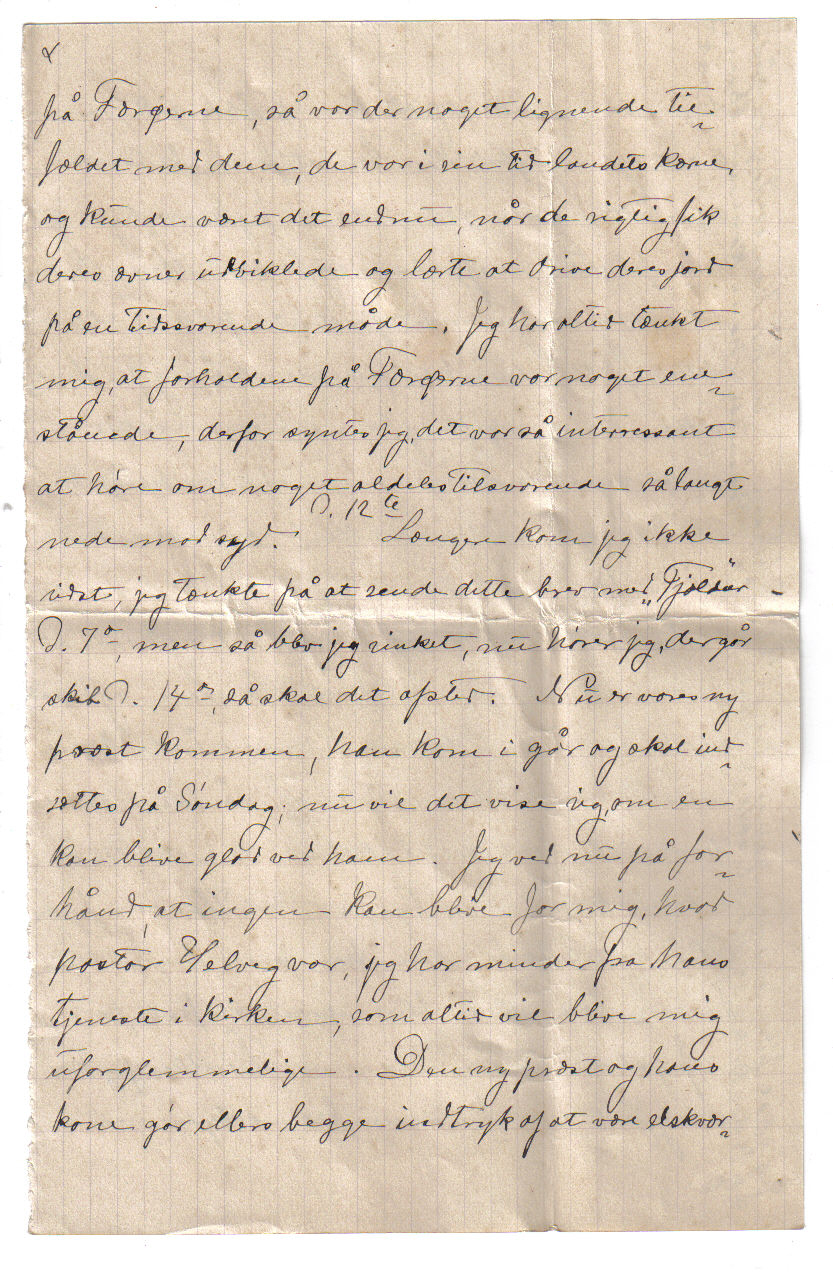 på Færøerne, så var der noget lignende til-
fældet med dem, de var i sin tid landets kærne,
og kunde været det endnu, når de rigtig fik
deres ævner udviklede og lærte at drive deres jord
på en tidssvarende måde. Jeg har altid tænkt
mig, at forholdene på Færøerne var noget ene-
stånede, derfor syntes jeg, det var så interressant
at høre om noget aldeles tilsvarende så langt
nede mod syd. D. 12te Længere kom jeg ikke
idst, jeg tænkte på at sende dette brev med "Tjaldur"
D. 7de, men så blev jeg sinket, nu hører jeg, der går
skib D. 14de, så skal det afsted. Nu er vores ny
præst kommen, han kom i går og skal ind-
sættes på Søndag; nu vil det vise sig, om en
kan blive glad ved ham. Jeg ved nu på for-
hånd, at ingen kan blive for mig, hvad
pastor Helveg var, jeg har minder fra hans
tjeneste i kirken, som altid vil blive mig
uforglemmelige. Den ny præst og hans
kone gør ellers begge indtryk af at være elskvær-